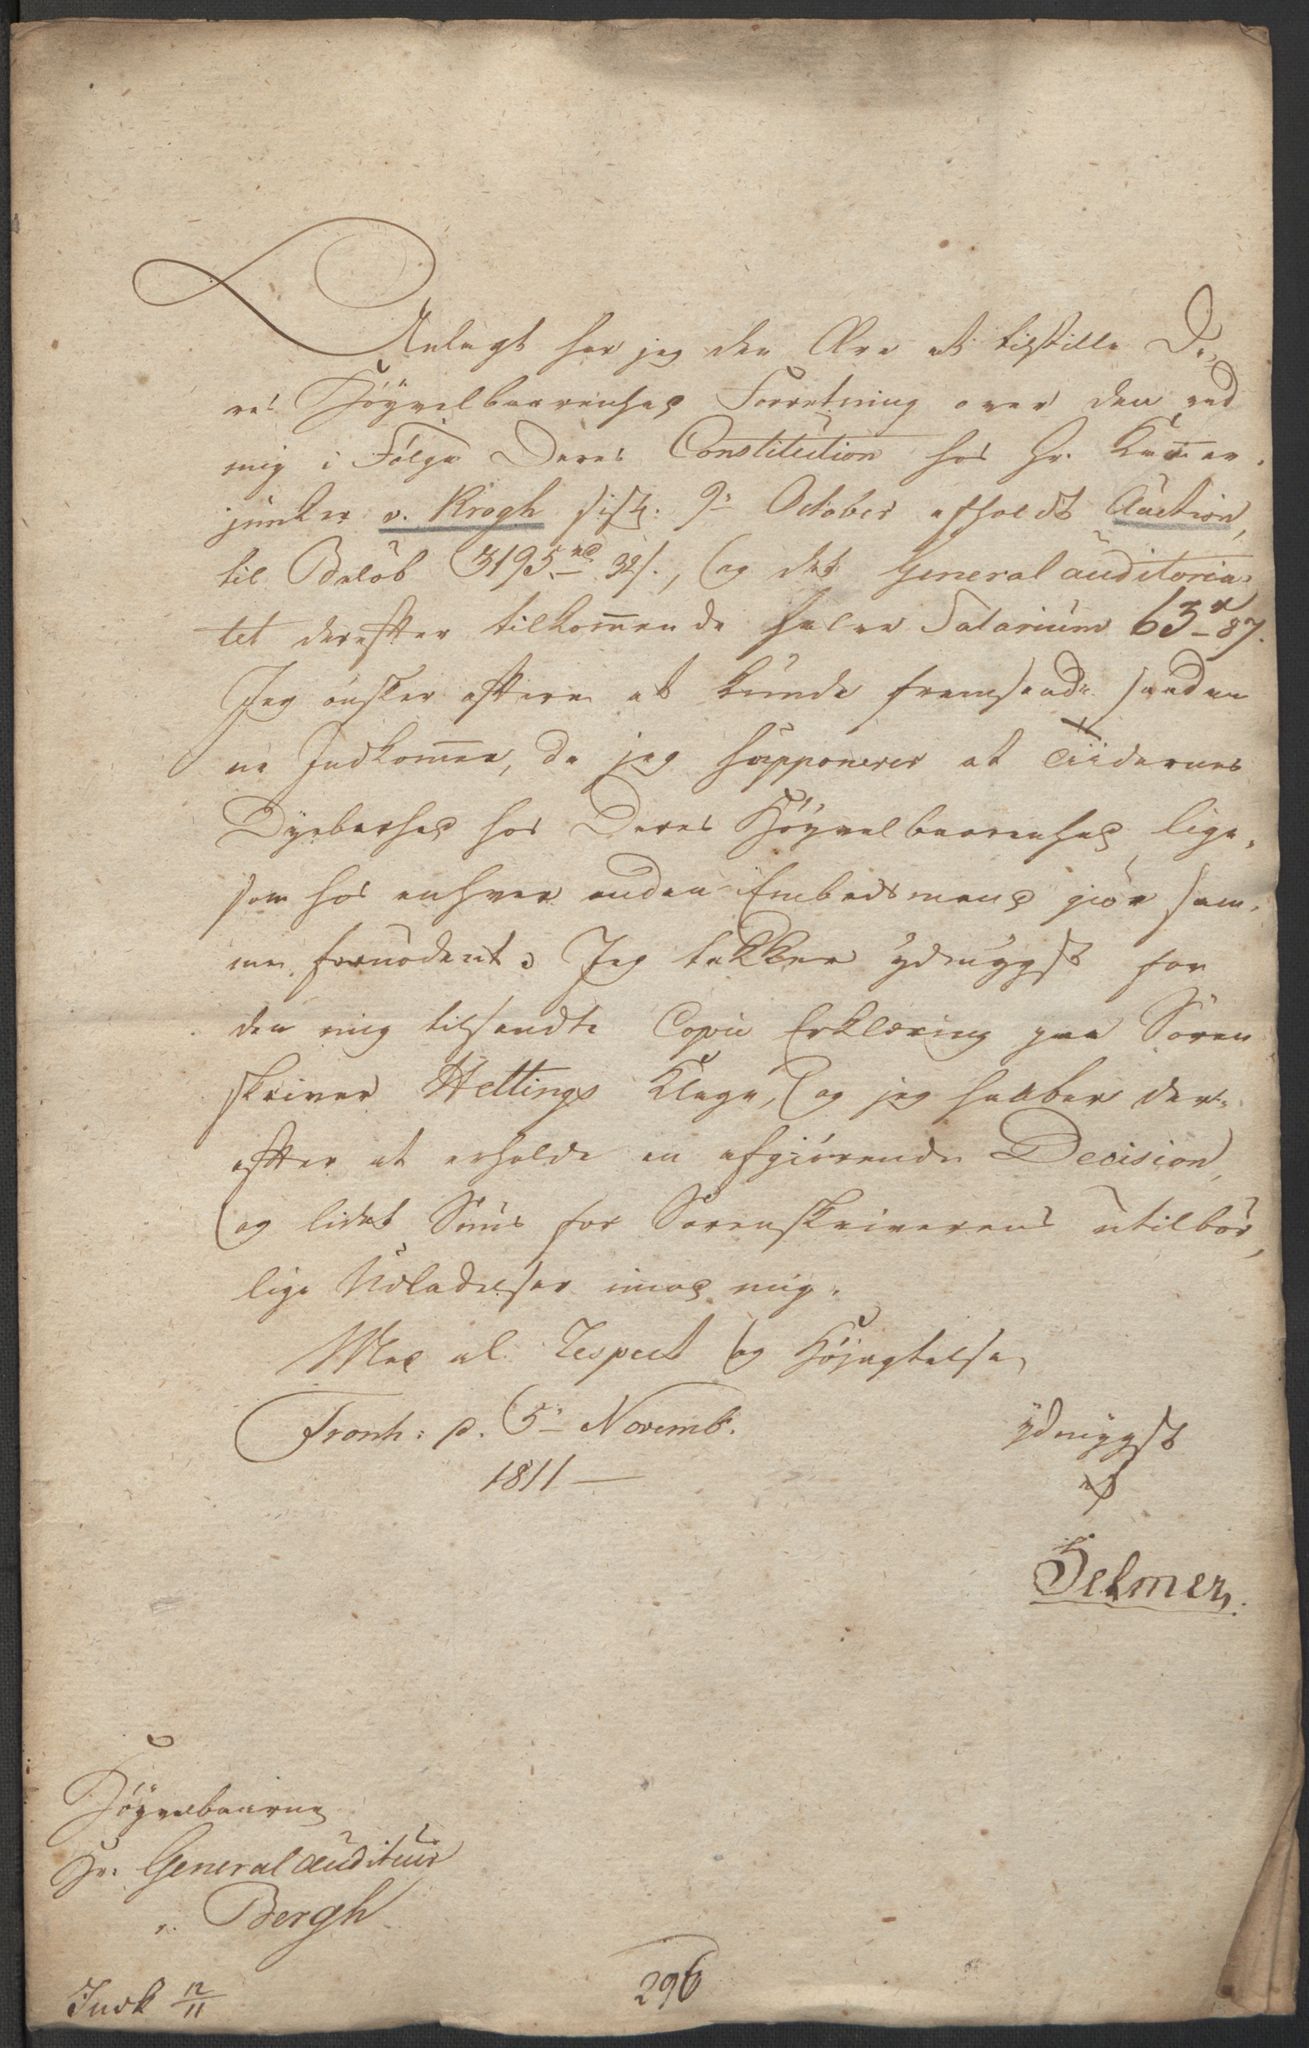 Anlagt har jeg den Ære at tilstille De,
res Höyvelbaarenhed Forretning over den ved
mig i Følge Deres Constitution hos Hr. Kammer,
junker v. Krogh sistl: 9de October afholdt Auction,
til Beløb 3195 rd 32 s., og det Generalauditoria,
tet derefter tilkommende halve Salarium 63 r 87.
Jeg ønsker oftere at kunde fremsende saadan
ne Indkomme, da jeg supponerer at Tiidernes
Dyrbarhed hos Deres Höyvelbaarenhed, lige,
som hos enhver anden Embedsmand giør sam,
me fornödent. Jeg takker ydmygst for
den mig tilsendte Copie Erklæring paa Soren
skriver Hettings Klage, og jeg haaber der,
efter at erholde en afgiörende Decision,
og lidet Siins for Sorenskriverens utilbør,
lige Udladelser imod mig.
Med al Respect og Höjagtelse,
Tronh: d. 5te Novemb.
1811 —
ydmygst
af
Selmer.
Höyvelbaarne
Hr: Generalauditeur
v. Bergh
Indk 12/11
296